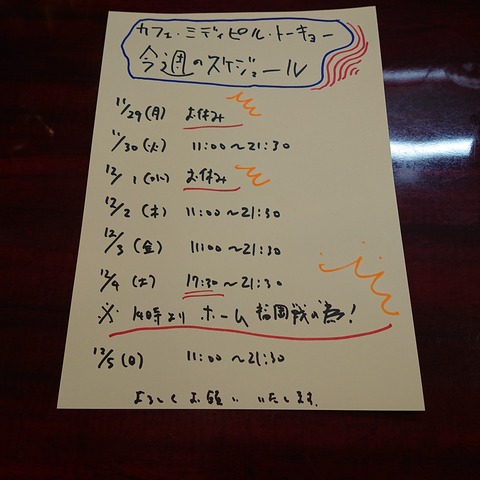 カフェ・ミディピル・トーキョー
今週のスケジュール
11/29(月) お休み
11/30(火) 11:00～21:30
12/1(水) お休み
12/2(木) 11:00～21:30
12/3(金) 11:00～21:30
12/4(土) 17:30～21:30
※ 14時より ホーム 福岡戦の為!
12/5(日) 11:00～21:30
よろしくお願いいたします.